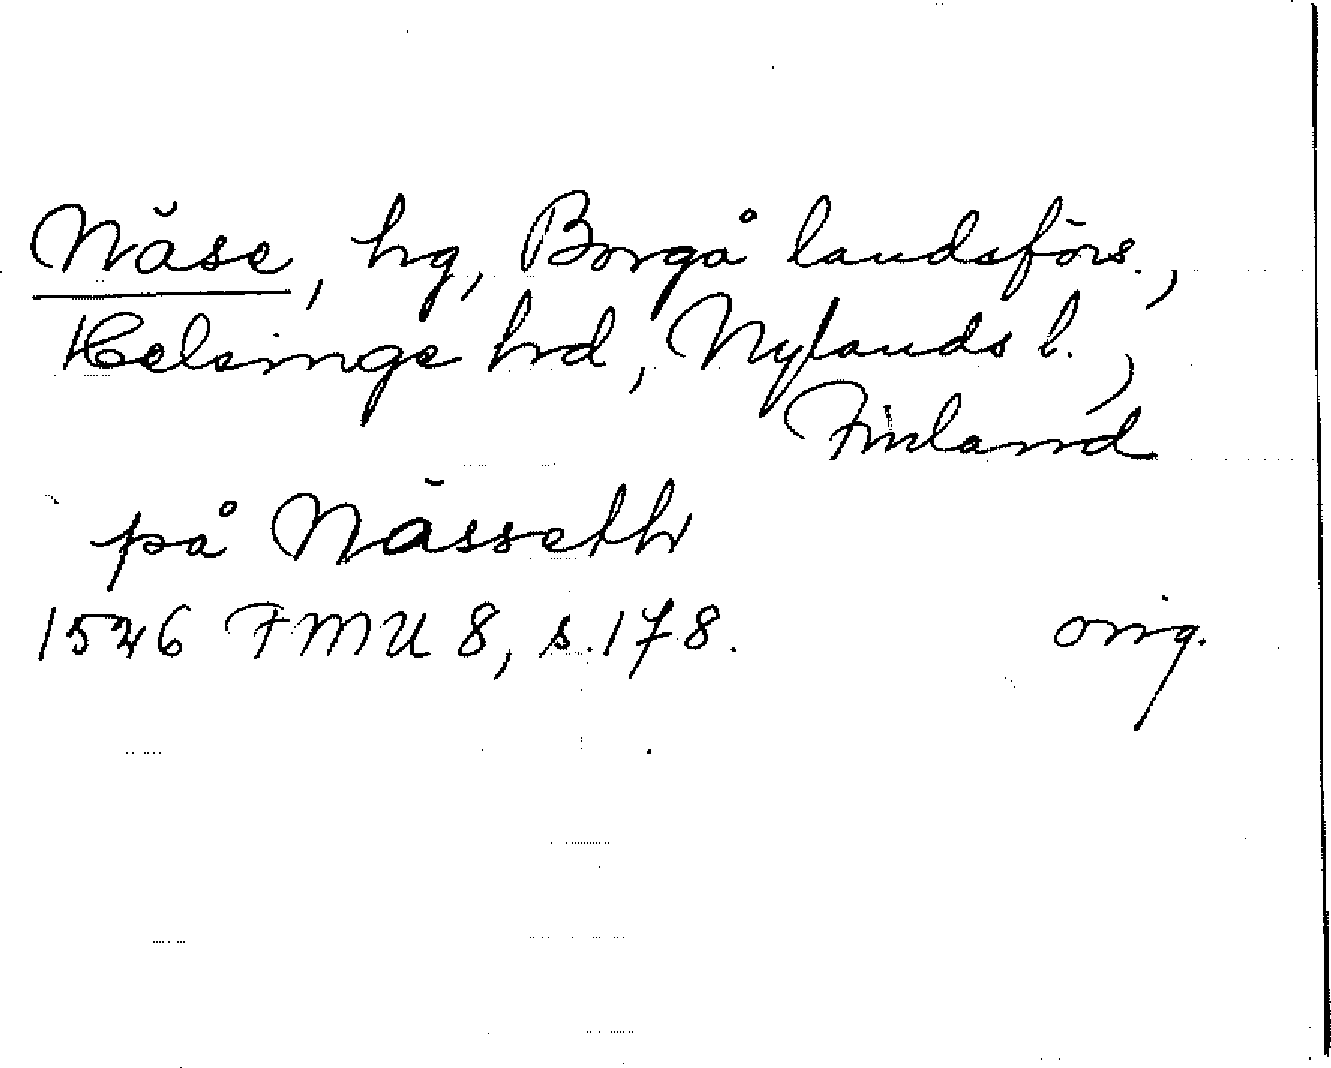 Näse, hg, Borgå landsförs.,
Helsinge hrd, Nylands l.,
Finland
på Nässeth
1526 FMU 8, s. 178. orig.